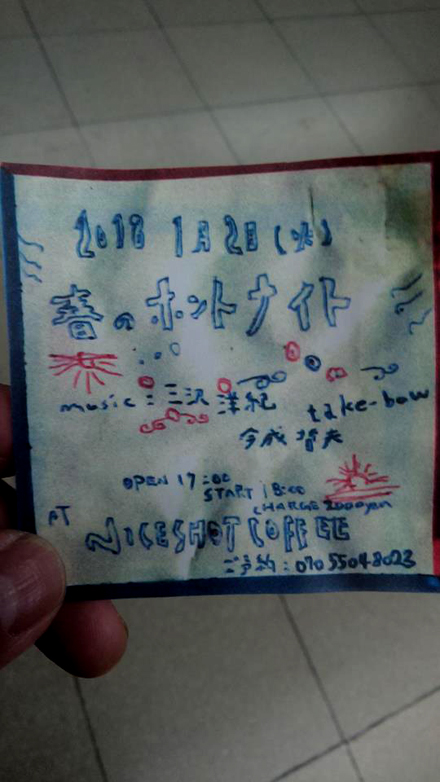 2018 1月2日(火)
春のホットナイト
music: 三沢 洋紀 take-bow
今成 哲夫
OPEN 17:00
START 18:00
CHARGE 2000yen
AT NICESHOT COFFEE
ご予約:070 5504 8023